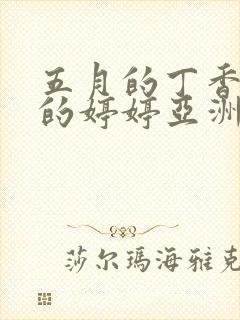 五月的丁香
的婷婷亞洲
莎尔瑪海雅克